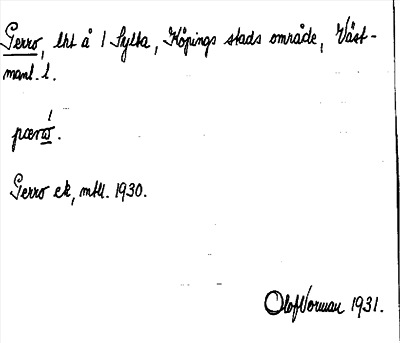 Perro, lht å 1 Sylta, Köpings stads område, Väst-
manl. l.
pærώ̲.
Perro ek, mtll. 1930.
Olof Norman 1931.